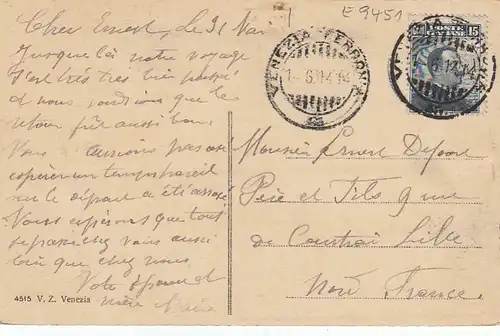 E 9451
Cher Ernest, le 31 Mai
Jusque là notre voyage
s'est très très bien passé
et nous voudrions que le
retour fut aussi bon.
Vous
un temps pareil
sur le départ a été assez
Nous espérons que tout
se passe chez vous aussi
bien que chez nous
Vote et
mère Marie
4515 V. Z. Venezia
POSTE 15
VENEZIA FERROVIA
1-6.14 14
VENEZIA FERROVIA
1-6.14 14
Monsieur Ernest
Père et Fils 9 rue
de Courtrai Lille
Nord France.